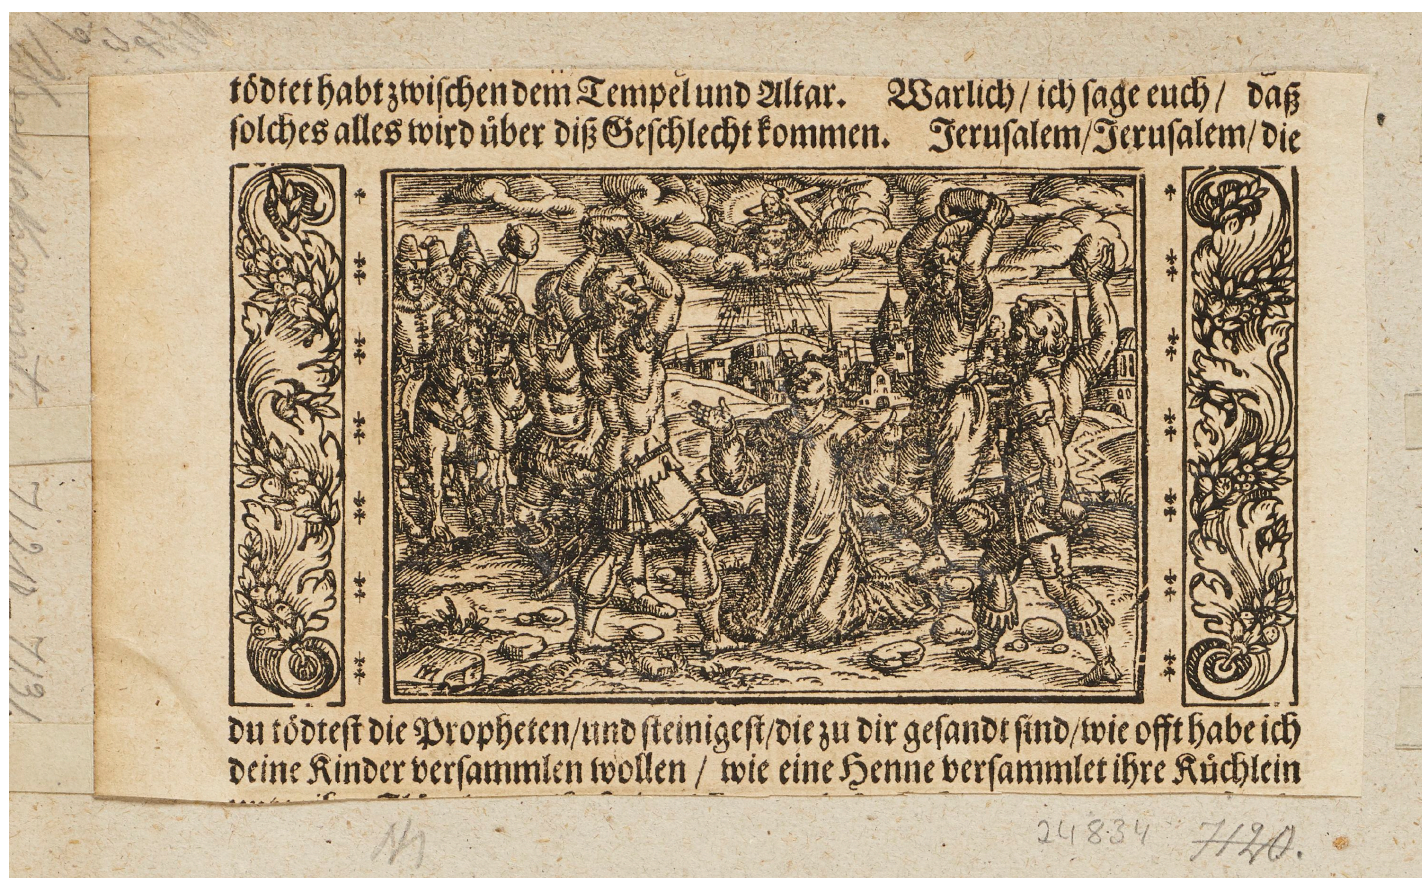 tödtet habt zwischen dem Tempel und Altar. Warlich / ich sage euch / daß
solches alles wird über diß Geschlecht kommen. Jerusalem / Jerusalem / die
du tödtest die Propheten / und steinigest / die zu dir gesandt sind / wie offt habe ich
deine Kinder versammlen wollen / wie eine Henne versammlet ihre Küchlein
24834 7120.